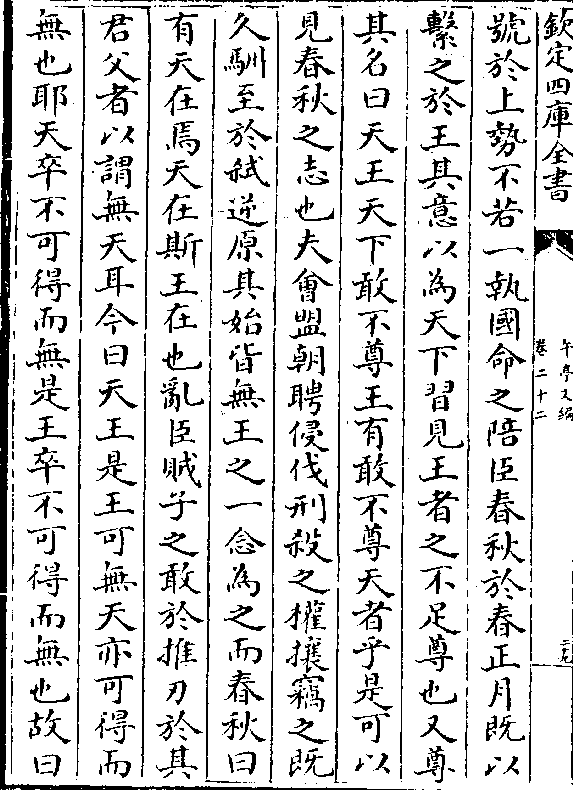 欽定四庫全書
午亭文編
卷二十二
號於上勢不若一執國命之陪臣春秋於春正月既以
繫之於王其意以為天下習見王者之不足尊也又尊
其名曰天王天下敢不尊王有敢不尊天者乎是可以
見春秋之志也夫會盟朝聘侵伐刑殺之權攘竊之既
久馴至於弒逆原其始皆無王之一念為之而春秋曰
有天在焉天在斯王在也亂臣賊子之敢於推刃於其
君父者以謂無天耳今曰天王是王可無天亦可得而
無也耶天卒不可得而無是王卒不可得而無也故曰